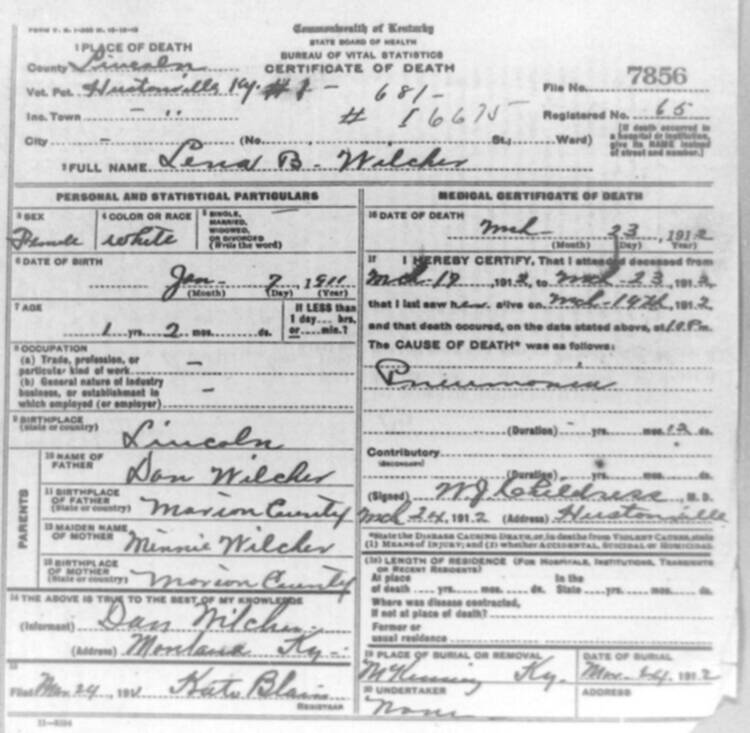 Commonwealth of Kentucky
STATE BOARD OF HEALTH
BUREAU OF VITAL STATISTICS
CERTIFICATE OF DEATH
1 PLACE OF DEATH
County Lincoln
Vot. Pct. Hustonville Ky. # 1 - 681-
File No. 7856
Inc. Town - " # I 6675
Registered No. 65
City - (No. St.; Ward)
[If death occurred in a hospital or institution, give its NAME instead of street and number.]
2 FULL NAME Lena B. Wilcher
PERSONAL AND STATISTICAL PARTICULARS
3 SEX Female
4 COLOR OR RACE white
5 SINGLE, MARRIED, WIDOWED, OR DIVORCED (Write the word) —
6 DATE OF BIRTH
Jan- 7, 1911
(Month) (Day) (Year)
7 AGE
1 yrs. 2 mos. ds.
If LESS than 1 day... hrs. or... min.?
8 OCCUPATION
(a) Trade, profession, or particular kind of work —
(b) General nature of industry business, or establishment in which employed (or employer) —
9 BIRTHPLACE
(State or country) Lincoln
PARENTS
10 NAME OF FATHER Dan Wilcher
11 BIRTHPLACE OF FATHER (State or country) Marion County
12 MAIDEN NAME OF MOTHER Minnie Wilcher
13 BIRTHPLACE OF MOTHER (State or country) Marion County
14 THE ABOVE IS TRUE TO THE BEST OF MY KNOWLEDGE
(Informant) Dan Wilcher
(Address) Moreland Ky-
15
Filed Mar 24, 191 Kate Blain
REGISTRAR
11-6024
MEDICAL CERTIFICATE OF DEATH
16 DATE OF DEATH
Mch 23, 1912
(Month) (Day) (Year)
17 I HEREBY CERTIFY, That I attended deceased from
Mch-19, 1912, to Mch-23, 191
that I last saw her alive on Mch-19th, 1912
and that death occured, on the date stated above, at 10 P m.
The CAUSE OF DEATH* was as follows:
Pneumonia
(Duration) yrs. mos. 12 ds.
Contributory
(SECONDARY)
(Duration) yrs. mos. ds.
(Signed) W J Childress, M. D.
Mch 24, 1912 (Address) Hustonville
*State the DISEASE CAUSING DEATH, or, in deaths from VIOLENT CAUSES, state
(1) MEANS OF INJURY; and (2) whether ACCIDENTAL, SUICIDAL or HOMICIDAL.
LENGTH OF RESIDENCE (FOR HOSPITALS, INSTITUTIONS, TRANSIENTS OR RECENT RESIDENTS)
At place of death yrs. mos. ds. In the State yrs. mos. ds.
Where was disease contracted, if not at place of death?
Former or usual residence
19 PLACE OF BURIAL OR REMOVAL
Ky.
DATE OF BURIAL
Mar. 24, 1912
20 UNDERTAKER
None
ADDRESS